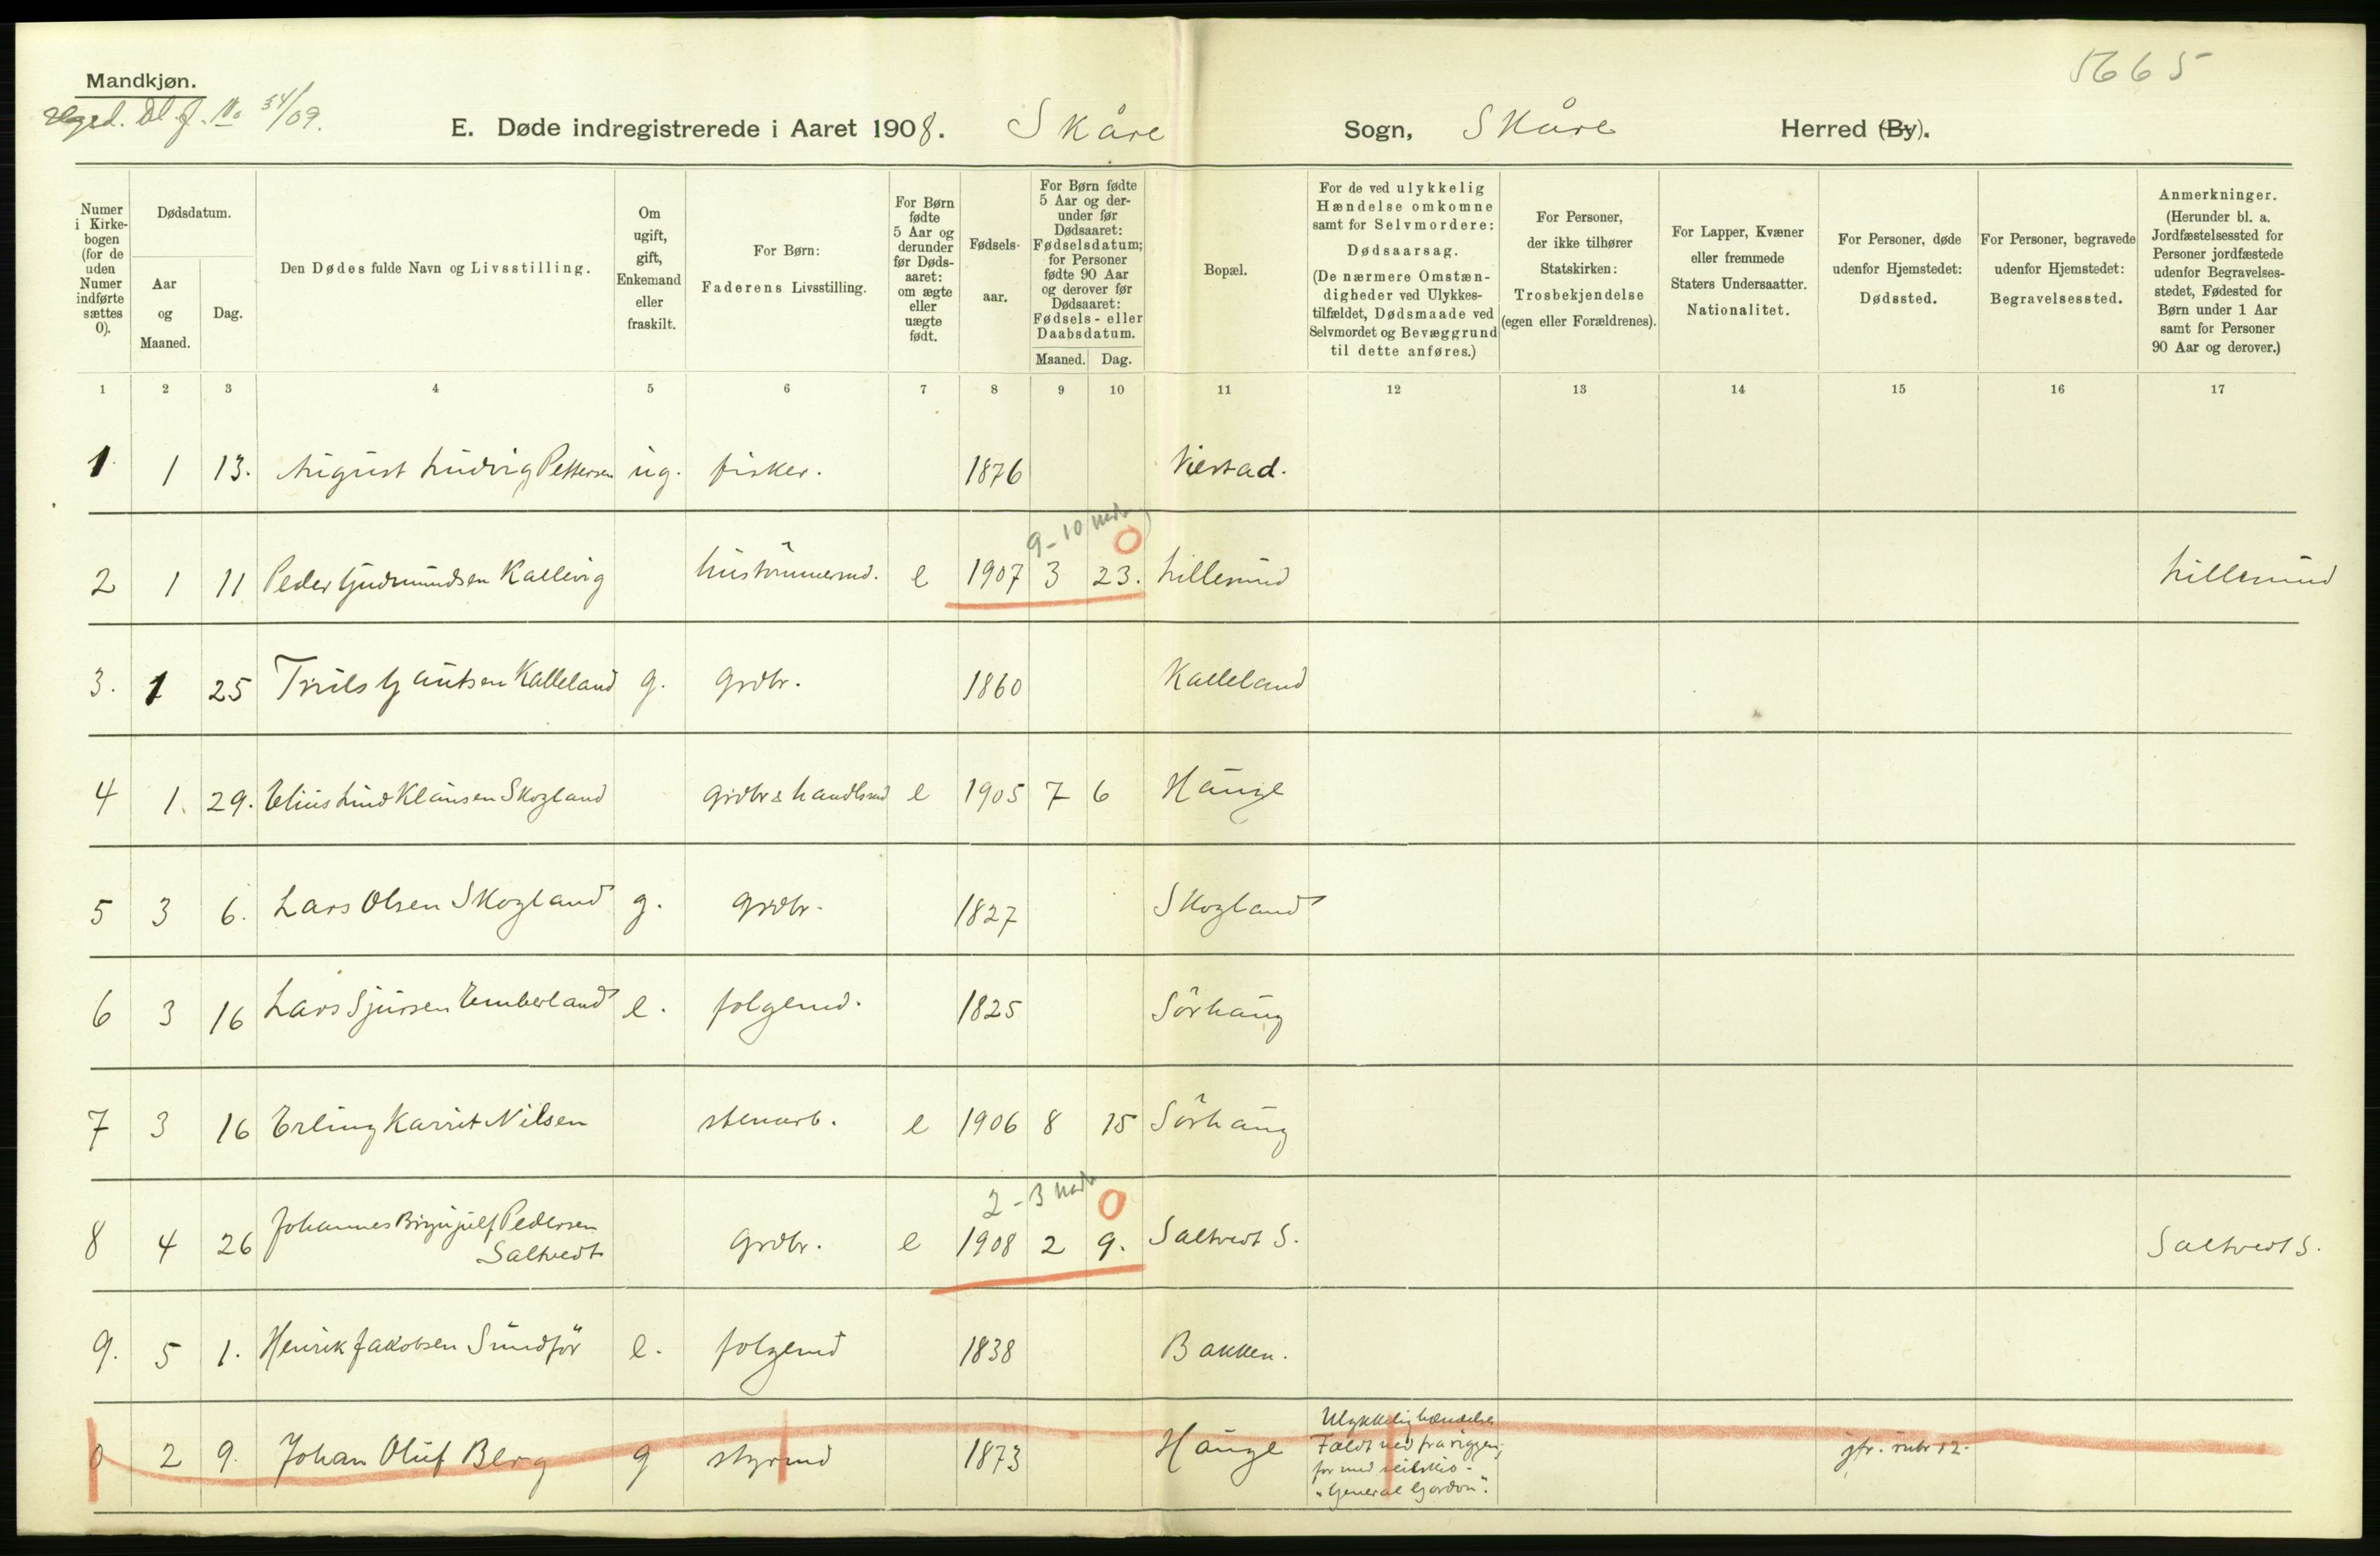 Mandkjøn.
No 34/09.
5665
E. Døde indregistrerede i Aaret 1908. Skåre Sogn, Skåre Herred (By).
Numer i Kirkebogen (for de uden Numer indførte sættes 0).
Dødsdatum.
Aar og Maaned.
Dag.
Den Dødes fulde Navn og Livsstilling.
Om ugift, gift, Enkemand eller fraskilt.
For Børn: Faderens Livsstilling.
For Børn fødte 5 Aar og derunder før Dødsaaret: om ægte eller uægte født.
Fødselsaar.
For Børn fødte 5 Aar og derunder før Dødsaaret: Fødselsdatum; for Personer fødte 90 Aar og derover før Dødsaaret: Fødsels- eller Daabsdatum.
Maaned. Dag.
Bopæl.
For de ved ulykkelig Hændelse omkomne samt for Selvmordere: Dødsaarsag. (De nærmere Omstændigheder ved Ulykkestilfældet, Dødsmaade ved Selvmordet og Bevæggrund til dette anføres.)
For Personer, der ikke tilhører Statskirken: Trosbekjendelse (egen eller Forældrenes).
For Lapper, Kvæner eller fremmede Staters Undersaatter. Nationalitet.
For Personer, døde udenfor Hjemstedet: Dødssted.
For Personer, begravede udenfor Hjemstedet: Begravelsessted.
Anmerkninger. (Herunder bl. a. Jordfæstelsessted for Personer jordfæstede udenfor Begravelsesstedet, Fødested for Børn under 1 Aar samt for Personer 90 Aar og derover.)
1 2 3 4 5 6 7 8 9 10 11 12 13 14 15 16 17
1. 1 13. August Ludvig Pettersen ug. fisker. 1876
9-10 mdr 0
2 1 11 Peder Gudmundsen Kallevig hustömmermd. e 1907 3 23. Lillesund Lillesund
3. 1 25 Truls Gautsen Kalleland g. grdbr. 1860 Kalleland
4 1. 29. Elius Lind Klausen Skogland grdbr & handlsmd e 1905 7 6 Hauge
5 3 6. Lars Olsen Skogland g. grdbr. 1827 Skogland
6 3 16 Lars Sjursen Emberland e. folgemd. 1825 Sörhaug
7 3 16 Erling Karsit Nilsen stenarb. e 1906 8 15 Sörhaug
2-3 mdr 0
8 4 26 Johannes Pedersen
Saltvedt grdbr. e 1908 2 9. Saltvedt S. Saltvedt S.
9. 5 1. Henrik Jakobsen Sundför e. folgemd 1838 Bakken.
0 2 9. Johan Oluf Berg g styrmd 1873 Hauge Ulykkelig hændelse
Faldt ned fra riggen, jfr. rubr 12.
for med seilskib
"General Gordon".